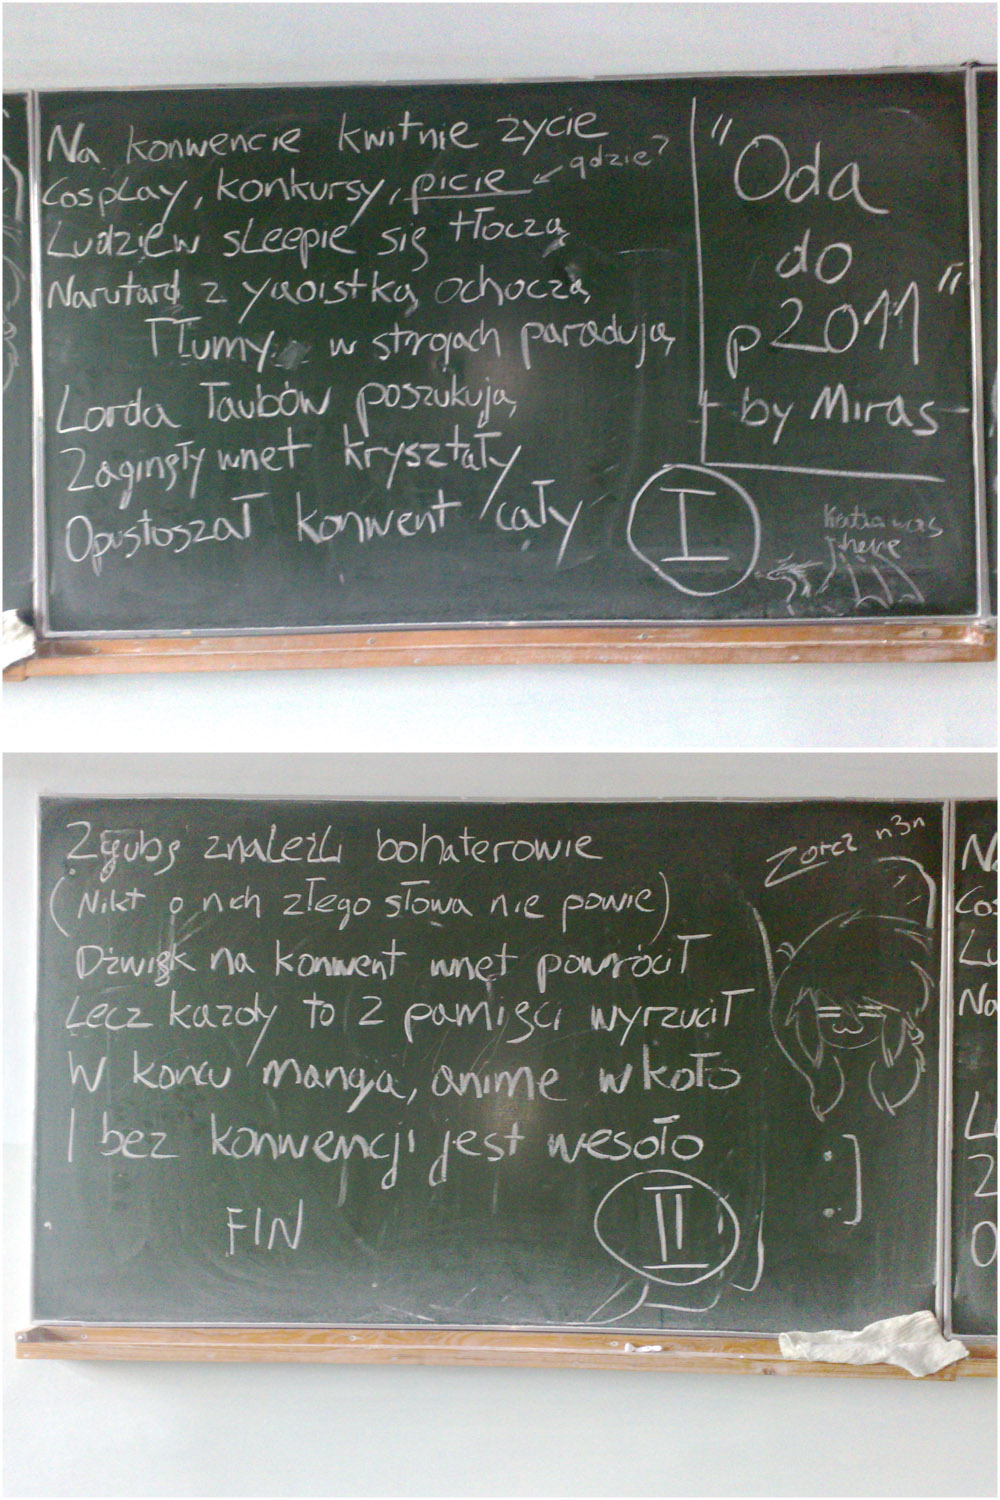 Na konwencie kwitnie życie
Cosplay, konkursy, picie
gdzie?
Ludzie w sleepie się tłoczą
Narutard z yaoistką ochoczą
Tłumy w strojach paradują
Lorda Taubów poszukują
Zaginęły wnet kryształy
Opustoszał konwent cały
I
"Oda
do
p2011"
by Miras
was
here
Zgubę znaleźli bohaterowie
(Nikt o nich złego słowa nie powie)
Dźwięk na konwent wnet powrócił
Lecz każdy to z pamięci wyrzucił
W koncu manga, anime w koło
I bez konwencji jest wesoło
FIN
II
Zorcz n3n
:]
Na
Cos
Lu
Na
L
Z
O